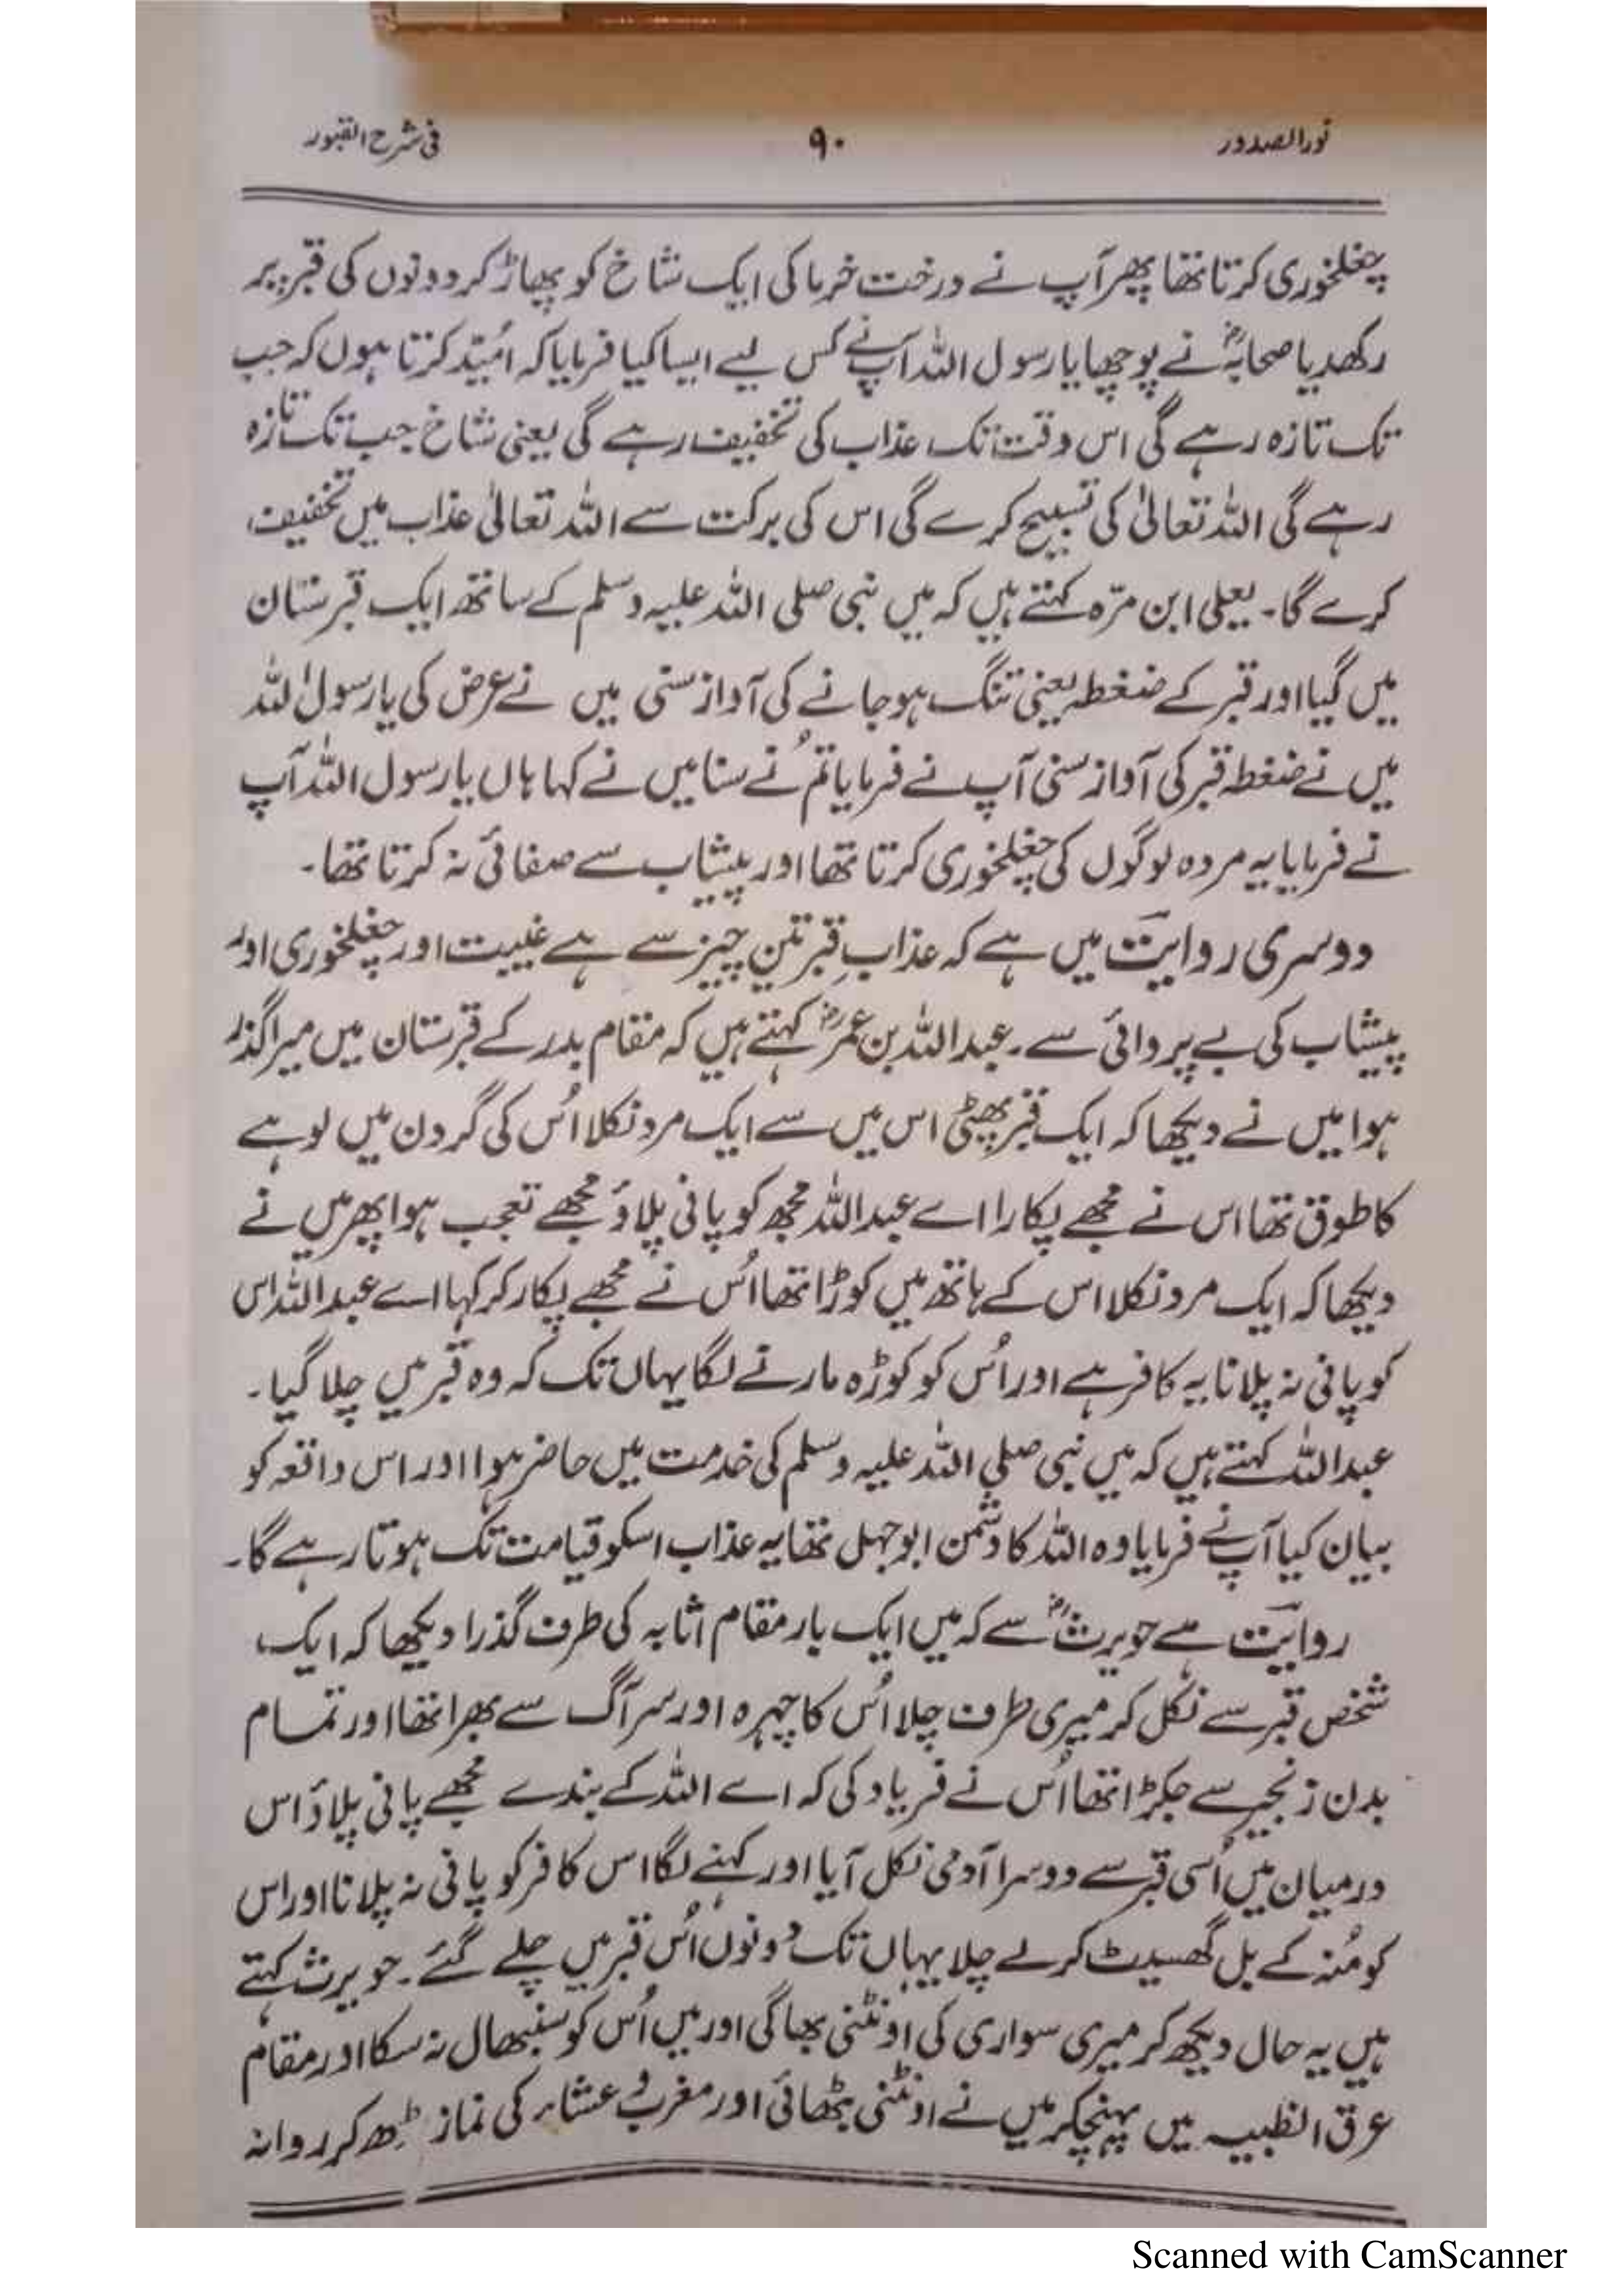 نور الصدور
۹۰
فی شرح القبور
چغلخوری کرتا تھا پھر آپ نے درخت خرما کی ایک شاخ کو پھاڑ کر دونوں کی قبر پر
رکھدیا صحابہؓ نے پوچھا یا رسول اللہ آپ نے کس لیے ایسا کیا فرمایا کہ اُمید کرتا ہوں کہ جب
تک تازہ رہے گی اس وقت تک عذاب کی تخفیف رہے گی یعنی شاخ جب تک تازہ
رہے گی اللہ تعالیٰ کی تسبیح کرے گی اس کی برکت سے اللہ تعالیٰ عذاب میں تخفیف
کرے گا۔ یعلی ابن مرّہ کہتے ہیں کہ میں نبی صلی اللہ علیہ وسلم کے ساتھ ایک قبرستان
میں گیا اور قبر کے ضغطہ یعنی تنگ ہوجانے کی آواز سنی میں نے عرض کی یا رسول اللہ
میں نے ضغطہ قبر کی آواز سنی آپ نے فرمایا تُم نے سنا میں نے کہا ہاں یا رسول اللہ آپ
نے فرمایا یہ مردہ لوگوں کی چغلخوری کرتا تھا اور پیشاب سے صفائی نہ کرتا تھا۔
دوسری روایت میں ہے کہ عذابِ قبر تین چیز سے ہے غیبت اور چغلخوری اور
پیشاب کی بے پروائی سے۔ عبداللہ بن عمرؓ کہتے ہیں کہ مقام بدر کے قبرستان میں میرا گذر
ہوا میں نے دیکھا کہ ایک قبر پھٹی اس میں سے ایک مرد نکلا اُس کی گردن میں لوہے
کا طوق تھا اس نے مجھے پکارا اے عبداللہ مجھ کو پانی پلاؤ مجھے تعجب ہوا پھر میں نے
دیکھا کہ ایک مرد نکلا اس کے ہاتھ میں کوڑا تھا اُس نے مجھے پکار کر کہا اے عبداللہ اس
کو پانی نہ پلانا یہ کافر ہے اور اُس کو کوڑہ مارنے لگا یہاں تک کہ وہ قبر میں چلا گیا۔
عبداللہ کہتے ہیں کہ میں نبی صلی اللہ علیہ وسلم کی خدمت میں حاضر ہوا اور اس واقعہ کو
بیان کیا آپ نے فرمایا وہ اللہ کا دشمن ابوجہل تھا یہ عذاب اسکو قیامت تک ہوتا رہے گا۔
روایت ہے حویرثؓ سے کہ میں ایک بار مقام اثابہ کی طرف گذرا دیکھا کہ ایک
شخص قبر سے نکل کر میری طرف چلا اُس کا چہرہ اور سر آگ سے بھرا تھا اور تمام
بدن زنجیر سے جکڑا تھا اُس نے فریاد کی کہ اے اللہ کے بندے مجھے پانی پلاؤ اس
درمیان میں اُسی قبر سے دوسرا آدمی نکل آیا اور کہنے لگا اس کافر کو پانی نہ پلانا اور اس
کو مُنہ کے بل گھسیٹ کر لے چلا یہاں تک دونوں اُس قبر میں چلے گئے۔ حویرث کہتے
ہیں یہ حال دیکھ کر میری سواری کی اونٹنی بھاگی اور میں اُس کو سنبھال نہ سکا اور مقام
عرق الظبیہ میں پہنچکر میں نے اونٹنی بٹھائی اور مغرب و عشاء کی نماز پڑھ کر روانہ
Scanned with CamScanner